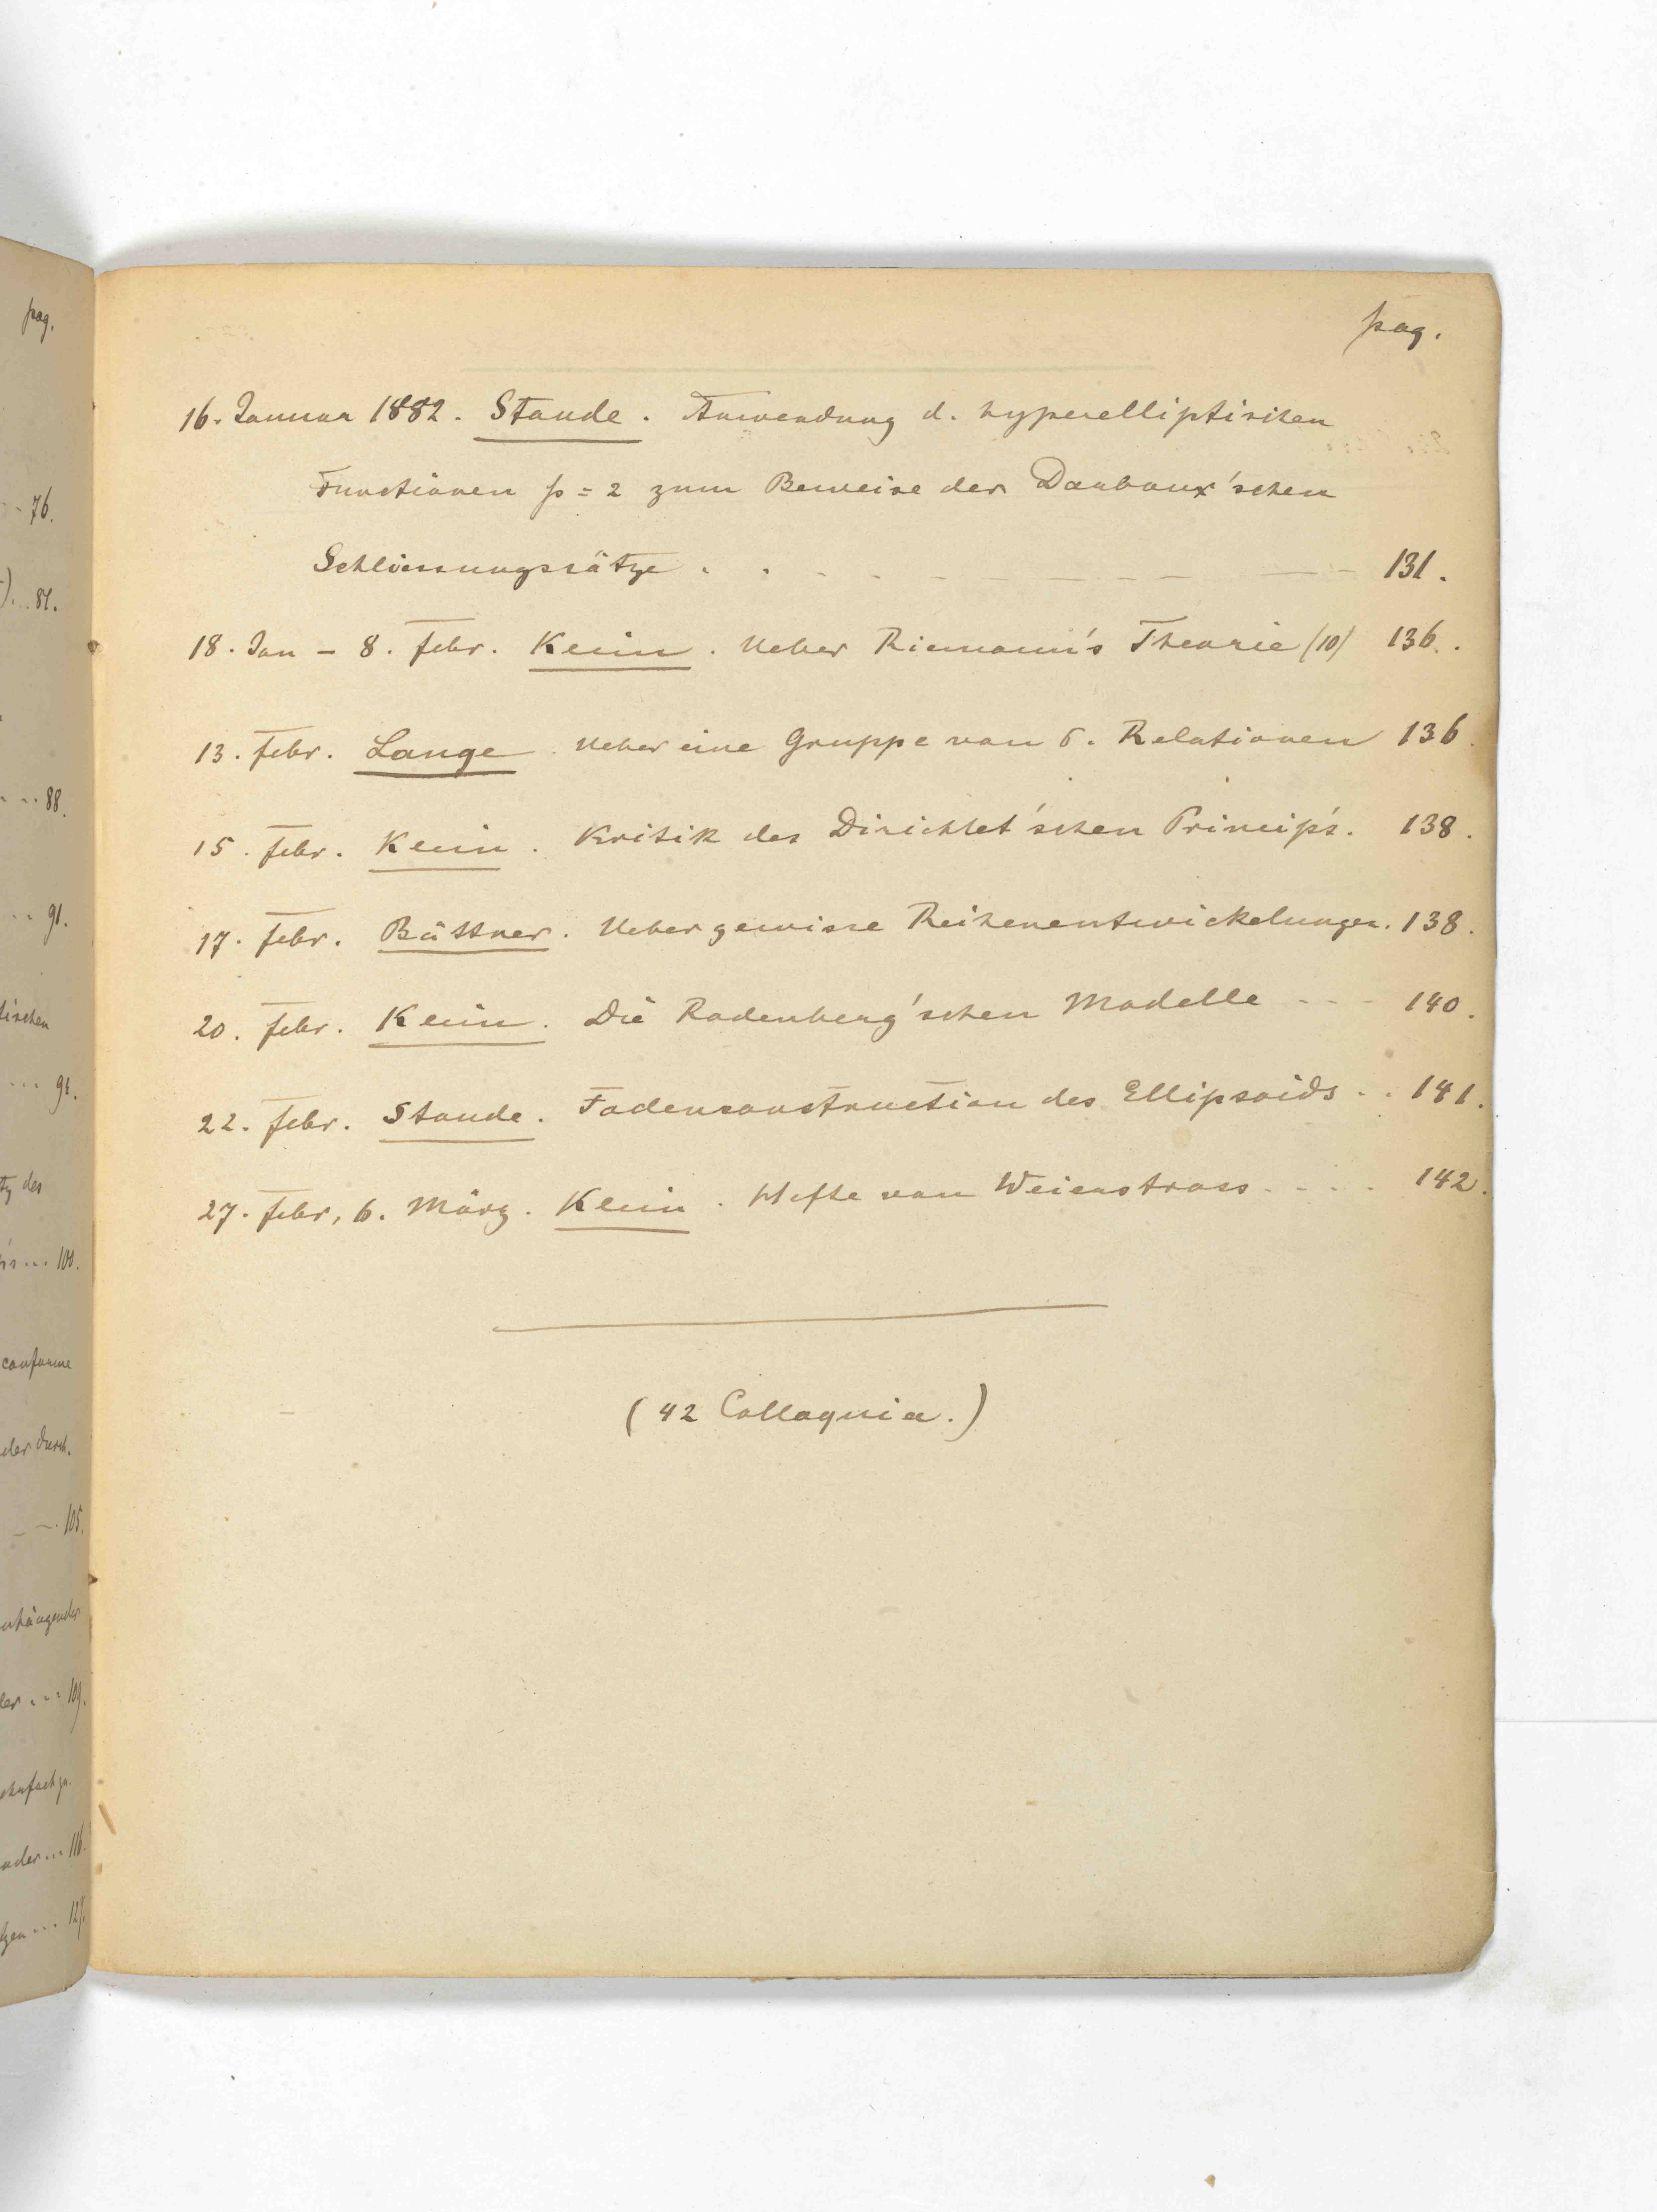 pag.
16. Januar 1882. Staude. Anwendung d. hyperelliptischen
Functionen p = 2 zum Beweise der Darboux'schen
Schliessungssätze . . - - - - - - - - 131.
18. Jan – 8. Febr. Klein. Ueber Riemann's Theorie (10) 136.
13. Febr. Lange. Ueber eine Gruppe von σ. Relationen 136.
15. Febr. Klein. Kritik des Dirichlet'schen Princip's. 138.
17. Febr. Büttner. Ueber gewisse Reihenentwickelungen. 138.
20. Febr. Klein. Die Rodenberg'schen Modelle - - - 140.
22. Febr. Staude. Fadenconstruction des Ellipsoids . . 141.
27. Febr, 6. März. Klein. Hefte von Weierstrass . . . . 142.
(42 Colloquia.)
pag.
76.
81.
88.
91.
tischen
des
conforme
der Durch-
105.
109.
116.